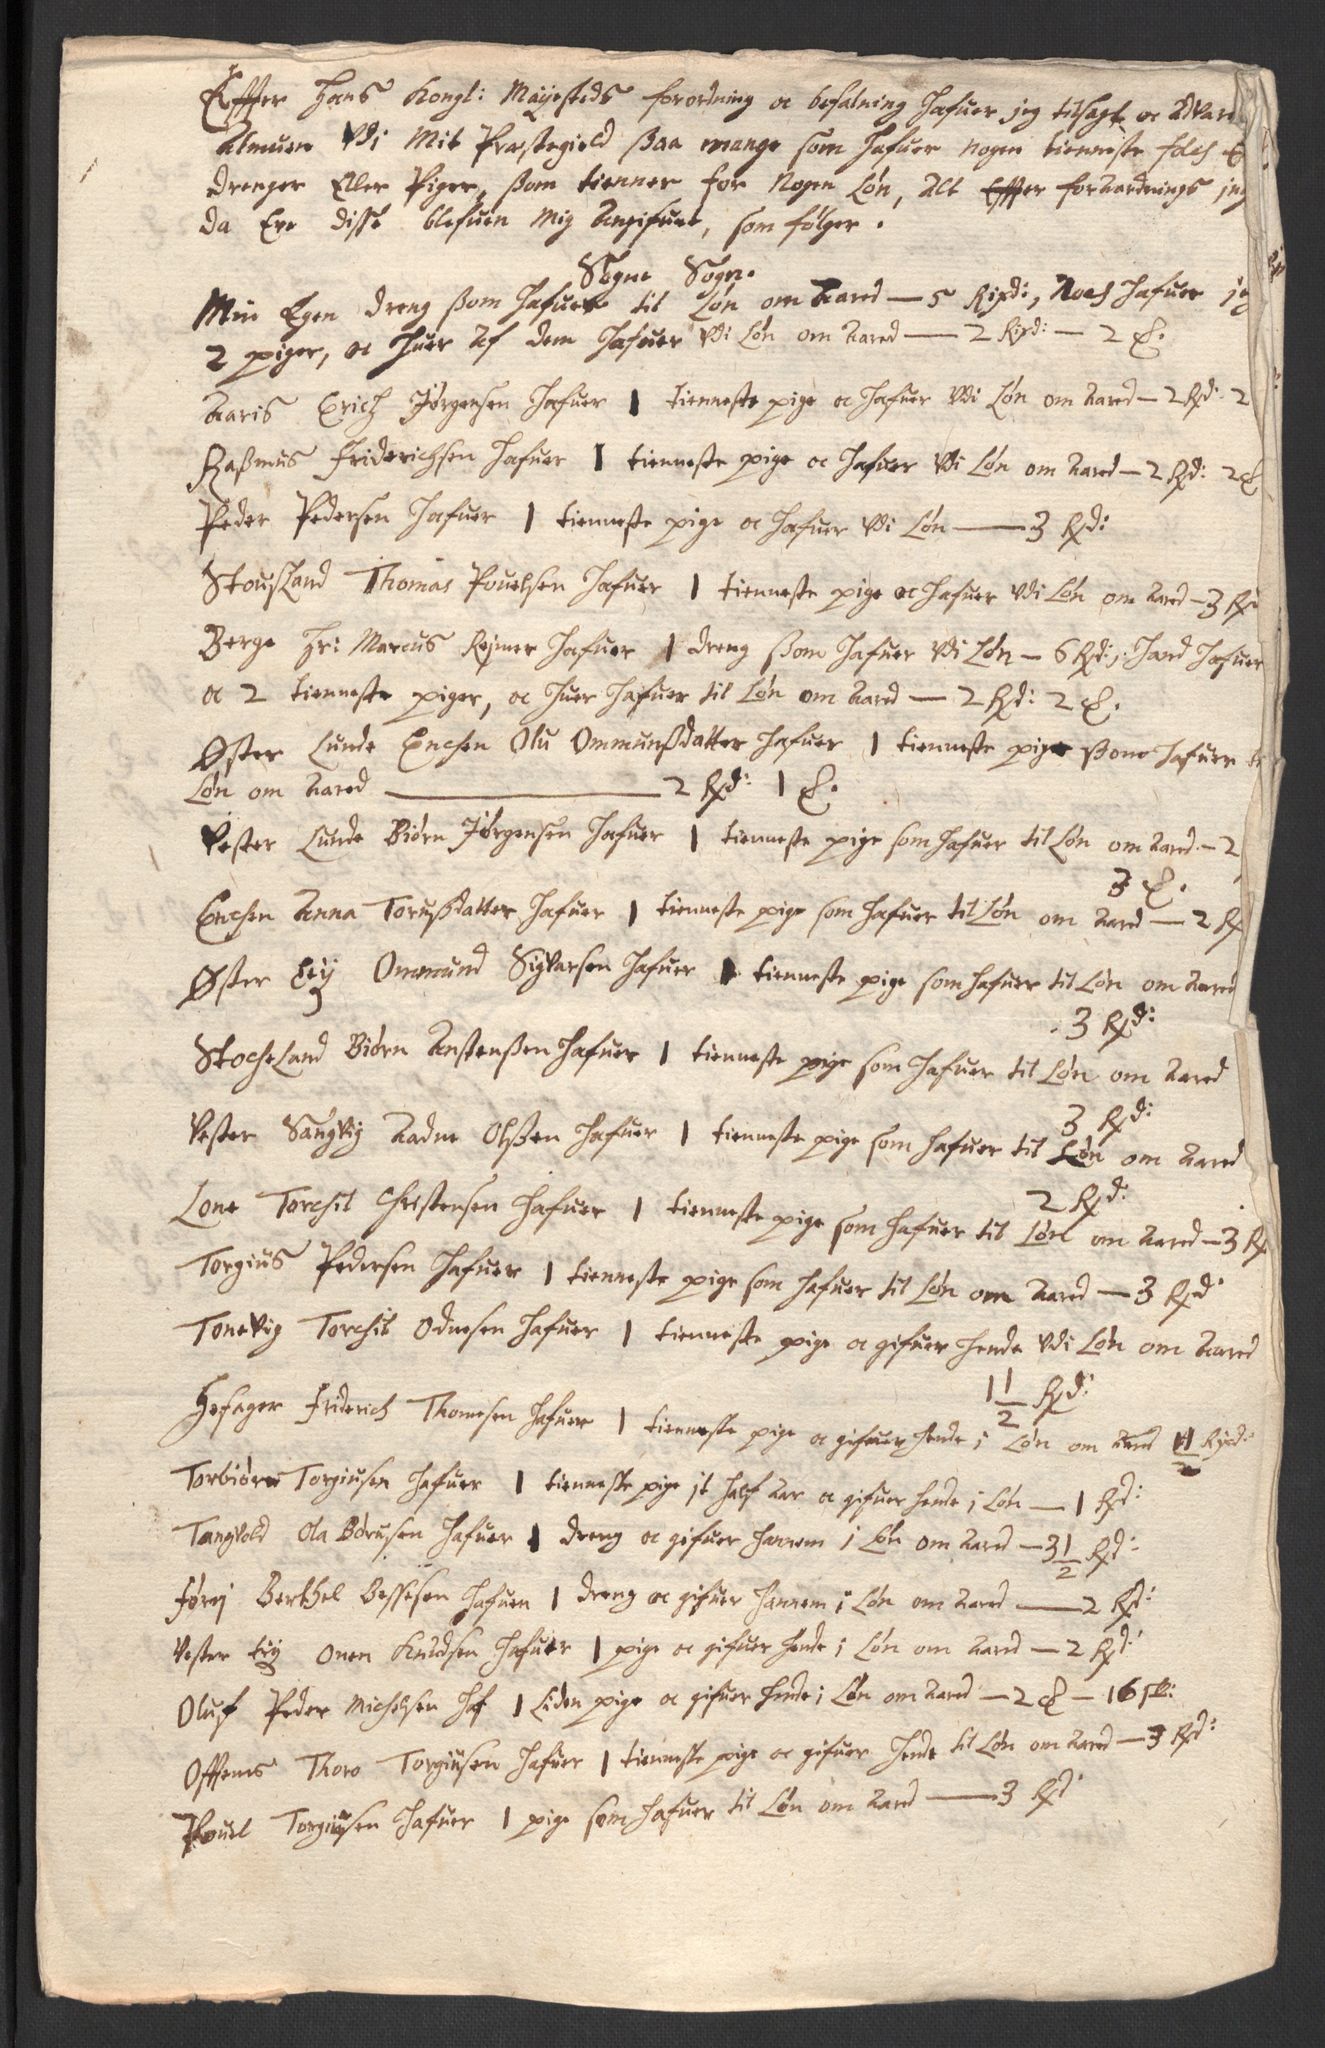 Effter Hans Kongl: Mayesteds forordning oc befalning hafuer jeg tilsagt oc advaret
Almuen Vdi Mit Præstegield ßaa mange som hafuer nogen tienneste folch
drenger Eller Piger, ßom tienner for Nogen Løn, Alt Effter forAardnings
da Ere disse blefuen Mig Angifuet, som følger.
Sogne Sogn.
Min Egen dreng ßom hafuer til Løn om Aared — 5 Rixd:, Noch hafuer jeg
2 piger, oc huer Af dem hafuer Vdi Løn om Aared — 2 Rixd: — 2 ℔.
Aaris Erich Jørgensen hafuer 1 tienneste pige oc hafuer Vdi Løn om Aared — 2 Rd: 2
Raßmus Friderichsen hafuer 1 tienneste pige oc hafuer Vdi Løn om Aared — 2 Rd: 2 ℔
Peder Pedersen hafuer 1 tienneste pige oc hafuer Vdi Løn — 3 Rd:
Stousland Thomas Pouelsen hafuer 1 tienneste pige oc hafuer Vdi Løn om Aared — 3 Rd
Berge Hr: Marcus Rejmer hafuer 1 dreng ßom hafuer Vdi Løn — 6 Rd: hand hafuer
oc 2 tienneste piger, oc huer hafuer til Løn om Aared — 2 Rd: 2 ℔.
Øster Lunde Enchen Olu Ommunßdatter hafuer 1 tienneste pige ßom hafuer
Løn om Aared — 2 Rd: 1 ℔.
Vester Lunde Biørn Jørgensen hafuer 1 tienneste pige som hafuer til Løn om Aared — 2
3 ℔.
Enchen Anna Torußdatter hafuer 1 tienneste pige som hafuer til Løn om Aared — 2 Rd
Øster Eeg Ommund Sigvarsen hafuer 1 tienneste pige som hafuer til Løn om Aared
3 Rd:
Stocheland Biørn Anstenßen hafuer 1 tienneste pige som hafuer til Løn om Aared
3 Rd:
Vester Sangvig Aadne Olßen hafuer 1 tienneste pige som hafuer til Løn om Aared
2 Rd:
Lone Torchil Christensen hafuer 1 tienneste pige som hafuer til Løn om Aared — 3 Rd
Torgius Pedersen hafuer 1 tienneste pige som hafuer til Løn om Aared — 3 Rd
Tonevig Torchil Odnesen hafuer 1 tienneste pige oc gifuer hende Vdi Løn om Aared
1 1/2 Rd:
Hesager Friderich Thomesen hafuer 1 tienneste pige oc gifuer hende i Løn om Aared 1 1/2 Rixd:
Torbiørn Torgiusen hafuer 1 tienneste pige it half Aar oc gifuer hende i Løn — 1 Rd:
Tangvold Ola Børusen hafuer 1 dreng oc gifuer hannem i Løn om Aared — 3 1/2 Rd:
Berthel Bessesen hafuen 1 dreng oc gifuer hannem i Løn om Aared — 2 Rd:
Vester Eeg Onen Knudsen hafuer 1 pige oc gifuer hende i Løn om Aared — 2 Rd:
Oluf Peder Michelsen haf 1 Liden pige oc gifuer hende i Løn om Aared — 2 ℔ — 16 sk:
Offenes Thoro Torgiusen hafuer 1 tienneste pige oc gifuer hende til Løn om Aared — 3 Rd:
Pouel Torgiusen hafuer 1 pige som hafuer til Løn om Aared — 3 Rd